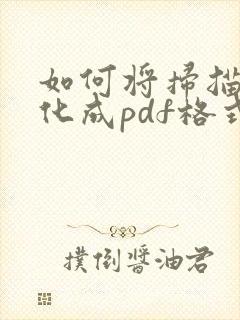 如何将扫描
化成pdf格式
撲倒醬油君